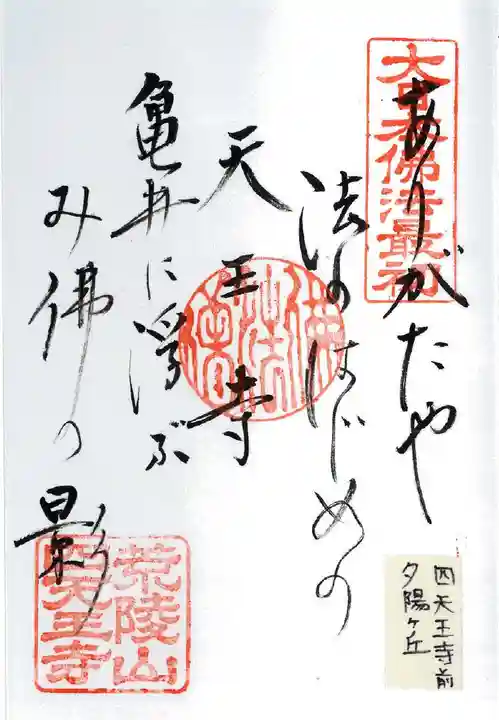 大日本佛法最初
ありがたや
法のはじめの
天王寺
亀井に浮ぶ
み佛の
影
荒陵山
四天王寺
四天王寺前
夕陽ヶ丘